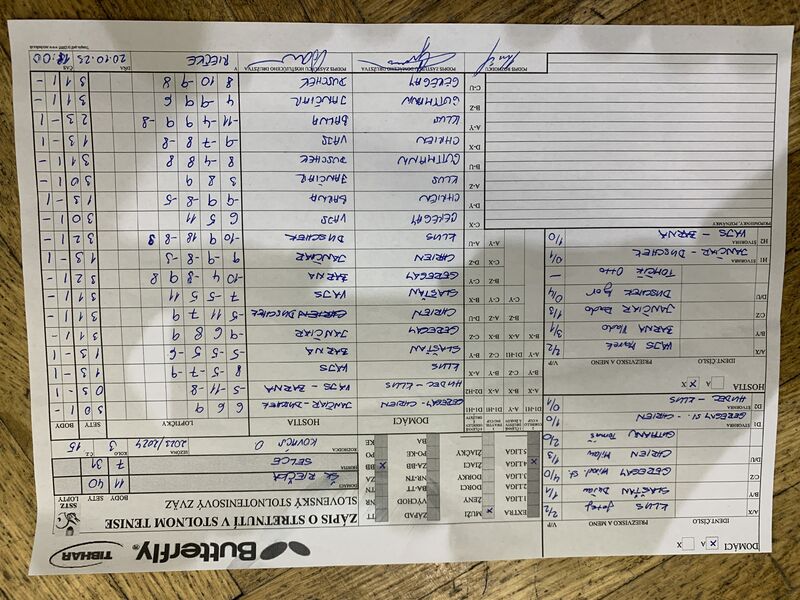 Butterfly
TIBHAR
ZÁPIS O STRETNUTÍ V STOLNOM TENISE
SLOVENSKÝ STOLNOTENISOVÝ ZVÄZ
SSTZ
BODY SETY LOPTY
DOMÁCI ŠK RIEČKA 11 40
HOSTIA SELCE 7 31
ROZHODCA KOVÁCS O
SEZÓNA 2023/2024
KOLO 3
Č.Z. 15
EXTRA MUŽI x TT
1 LIGA ŽENY ZÁPAD
2 LIGA DORCI VÝCHOD
3 LIGA DORKY BA-TT
4 LIGA x ŽIACI NR-TN
5 LIGA ŽIAČKY ZA-BB BB x
PO-KE PO
BA KE
DOMÁCI A x X
IDENT.ČÍSLO PRIEZVISKO A MENO V/P
A/X KLUS Jozef 2/2
B/Y SLAŠŤAN Dušan 1/1
C/Z GEREGAY Vlad. st. 4/0
D/U CHRIEN Milan 1/3
GUTMANN Tomáš 2/0
D1 ŠTVORHRA GEREGAY st. - CHRIEN 1/0
D2 ŠTVORHRA HUDEC - KLUS 0/1
HOSTIA A X x
IDENT.ČÍSLO PRIEZVISKO A MENO V/P
A/X VAJS Marek 2/2
B/Y BARNA Vlado 3/1
C/Z JANČIAR Rado 1/3
D/U DUSCHEK Igor 0/4
TOMČÍK Otto —
H1 ŠTVORHRA JANČIAR - DUSCHEK 0/1
H2 ŠTVORHRA VAJS - BARNA 1/0
PRIPOMIENKY, POZNÁMKY
DOMÁCI HOSTIA LOPTIČKY SETY BODY
D1-H1 GEREGAY - CHRIEN JANČIAR - DUSCHEK 6 9 6 3 0 1 -
D2-H2 HUDEC - KLUS VAJS - BARNA -5 -11 -8 0 3 - 1
A-X KLUS VAJS 8 -5 -7 -9 1 3 - 1
B-Y SLAŠŤAN BARNA -5 -5 5 -6 1 3 - 1
C-Z GEREGAY JANČIAR -9 6 8 9 3 1 1 -
D-U CHRIEN DUSCHEK -5 11 7 9 3 1 1 -
B-X SLAŠŤAN VAJS 7 -5 5 11 3 1 1 -
C-Y GEREGAY BARNA -10 4 8 -8 9 8 3 2 1 -
D-Z CHRIEN JANČIAR 9 -9 -8 -3 1 3 - 1
A-U KLUS DUSCHEK -10 9 18 -8 9 3 2 1 -
C-X GEREGAY VAJS 6 5 11 3 0 1 -
D-Y CHRIEN BARNA -9 -8 9 -5 1 3 - 1
A-Z KLUS JANČIAR 3 8 9 3 0 1 -
B-U GUTMANN DUSCHEK 8 -4 8 8 3 1 1 -
D-X CHRIEN VAJS -9 7 -8 -8 1 3 - 1
A-Y KLUS BARNA -11 -4 9 9 -8 2 3 - 1
B-Z GUTMANN JANČIAR 4 -9 9 6 3 1 1 -
C-U GEREGAY DUSCHEK 8 10 -9 8 3 1 1 -
PODPIS ROZHODCU
PODPIS ZÁSTUPCU DOMÁCEHO DRUŽSTVA
PODPIS ZÁSTUPCU HOSŤUJÚCEHO DRUŽSTVA
V RIEČKE
DŇA 20.10.23
ČAS 18:00